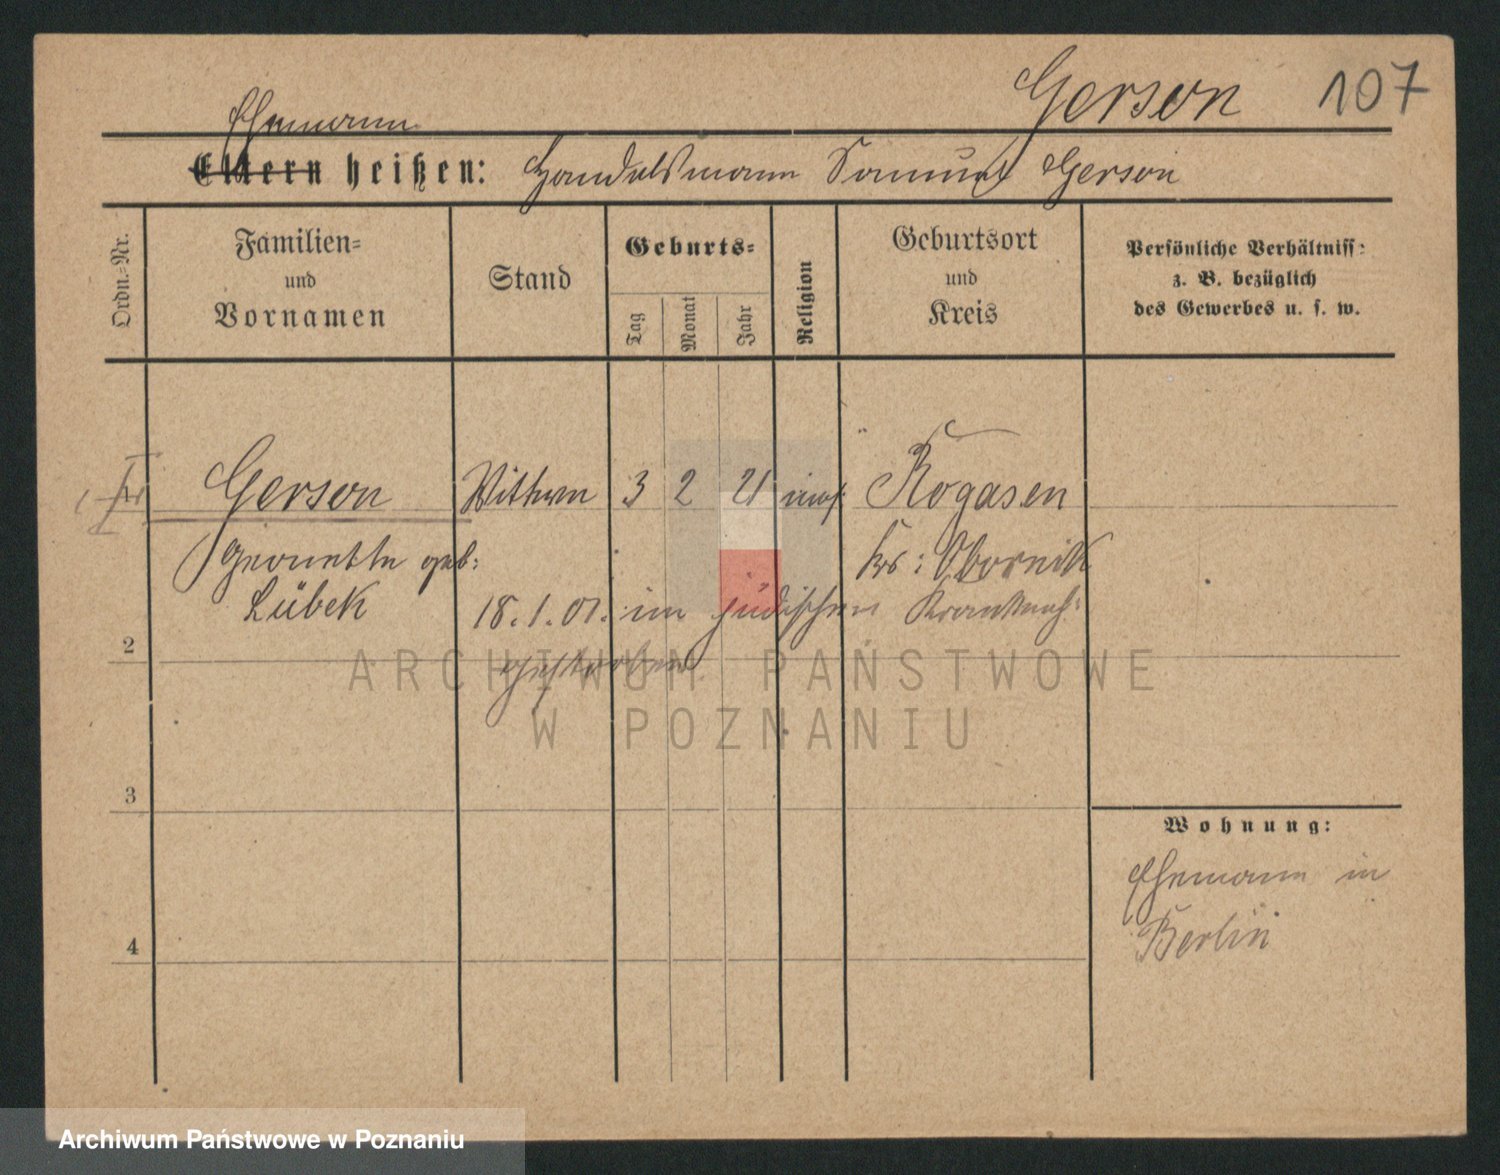 Gerson 107
Ehemann
Eltern heißen: Handelsmann Samuel Gerson
Ordn.-Nr.
Familien-
und
Vornamen
Stand
Geburts-
Tag
Monat
Jahr
Religion
Geburtsort
und
Kreis
Persönliche Verhältniss-
z. B. bezüglich
des Gewerbes u. s. w.
Gerson Wittwe 3 2 21 mos: Rogasen
geb: Krs: Obornik
Lübek 18.1.01. im jüdischen Krankenh:
2 gestorben.
ARCHIWUM PAŃSTWOWE
W POZNANIU
3
Wohnung:
Ehemann in
Berlin
4
Archiwum Państwowe w Poznaniu